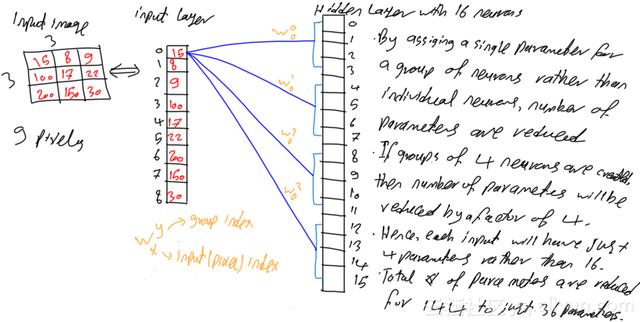 Input image
3
3
15 8 9
100 17 22
200 150 30
9 pixels
input Layer
0 15
1 8
2 9
3 100
4 17
5 22
6 200
7 150
8 30
w⁰₀
w¹₀
w²₀
w³₀
w^y_x
→ group index
→ input (pixel) index
Hidden Layer with 16 neurons
0
1
2
3
4
5
6
7
8
9
10
11
12
13
14
15
· By assiging a single parameter for
a group of neurons rather than
individual neurons, number of
parameters are reduced
· If groups of 4 neurons are created
then number of parameters will be
reduced by a factor of 4.
· Hence, each input will have just
4 parameters rather than 16.
· Total # of parameters are reduced
for 144 to just 36 parameters.